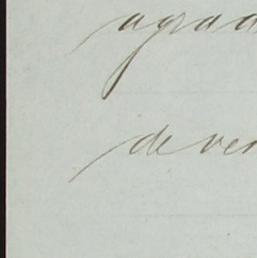 agrad
de ver